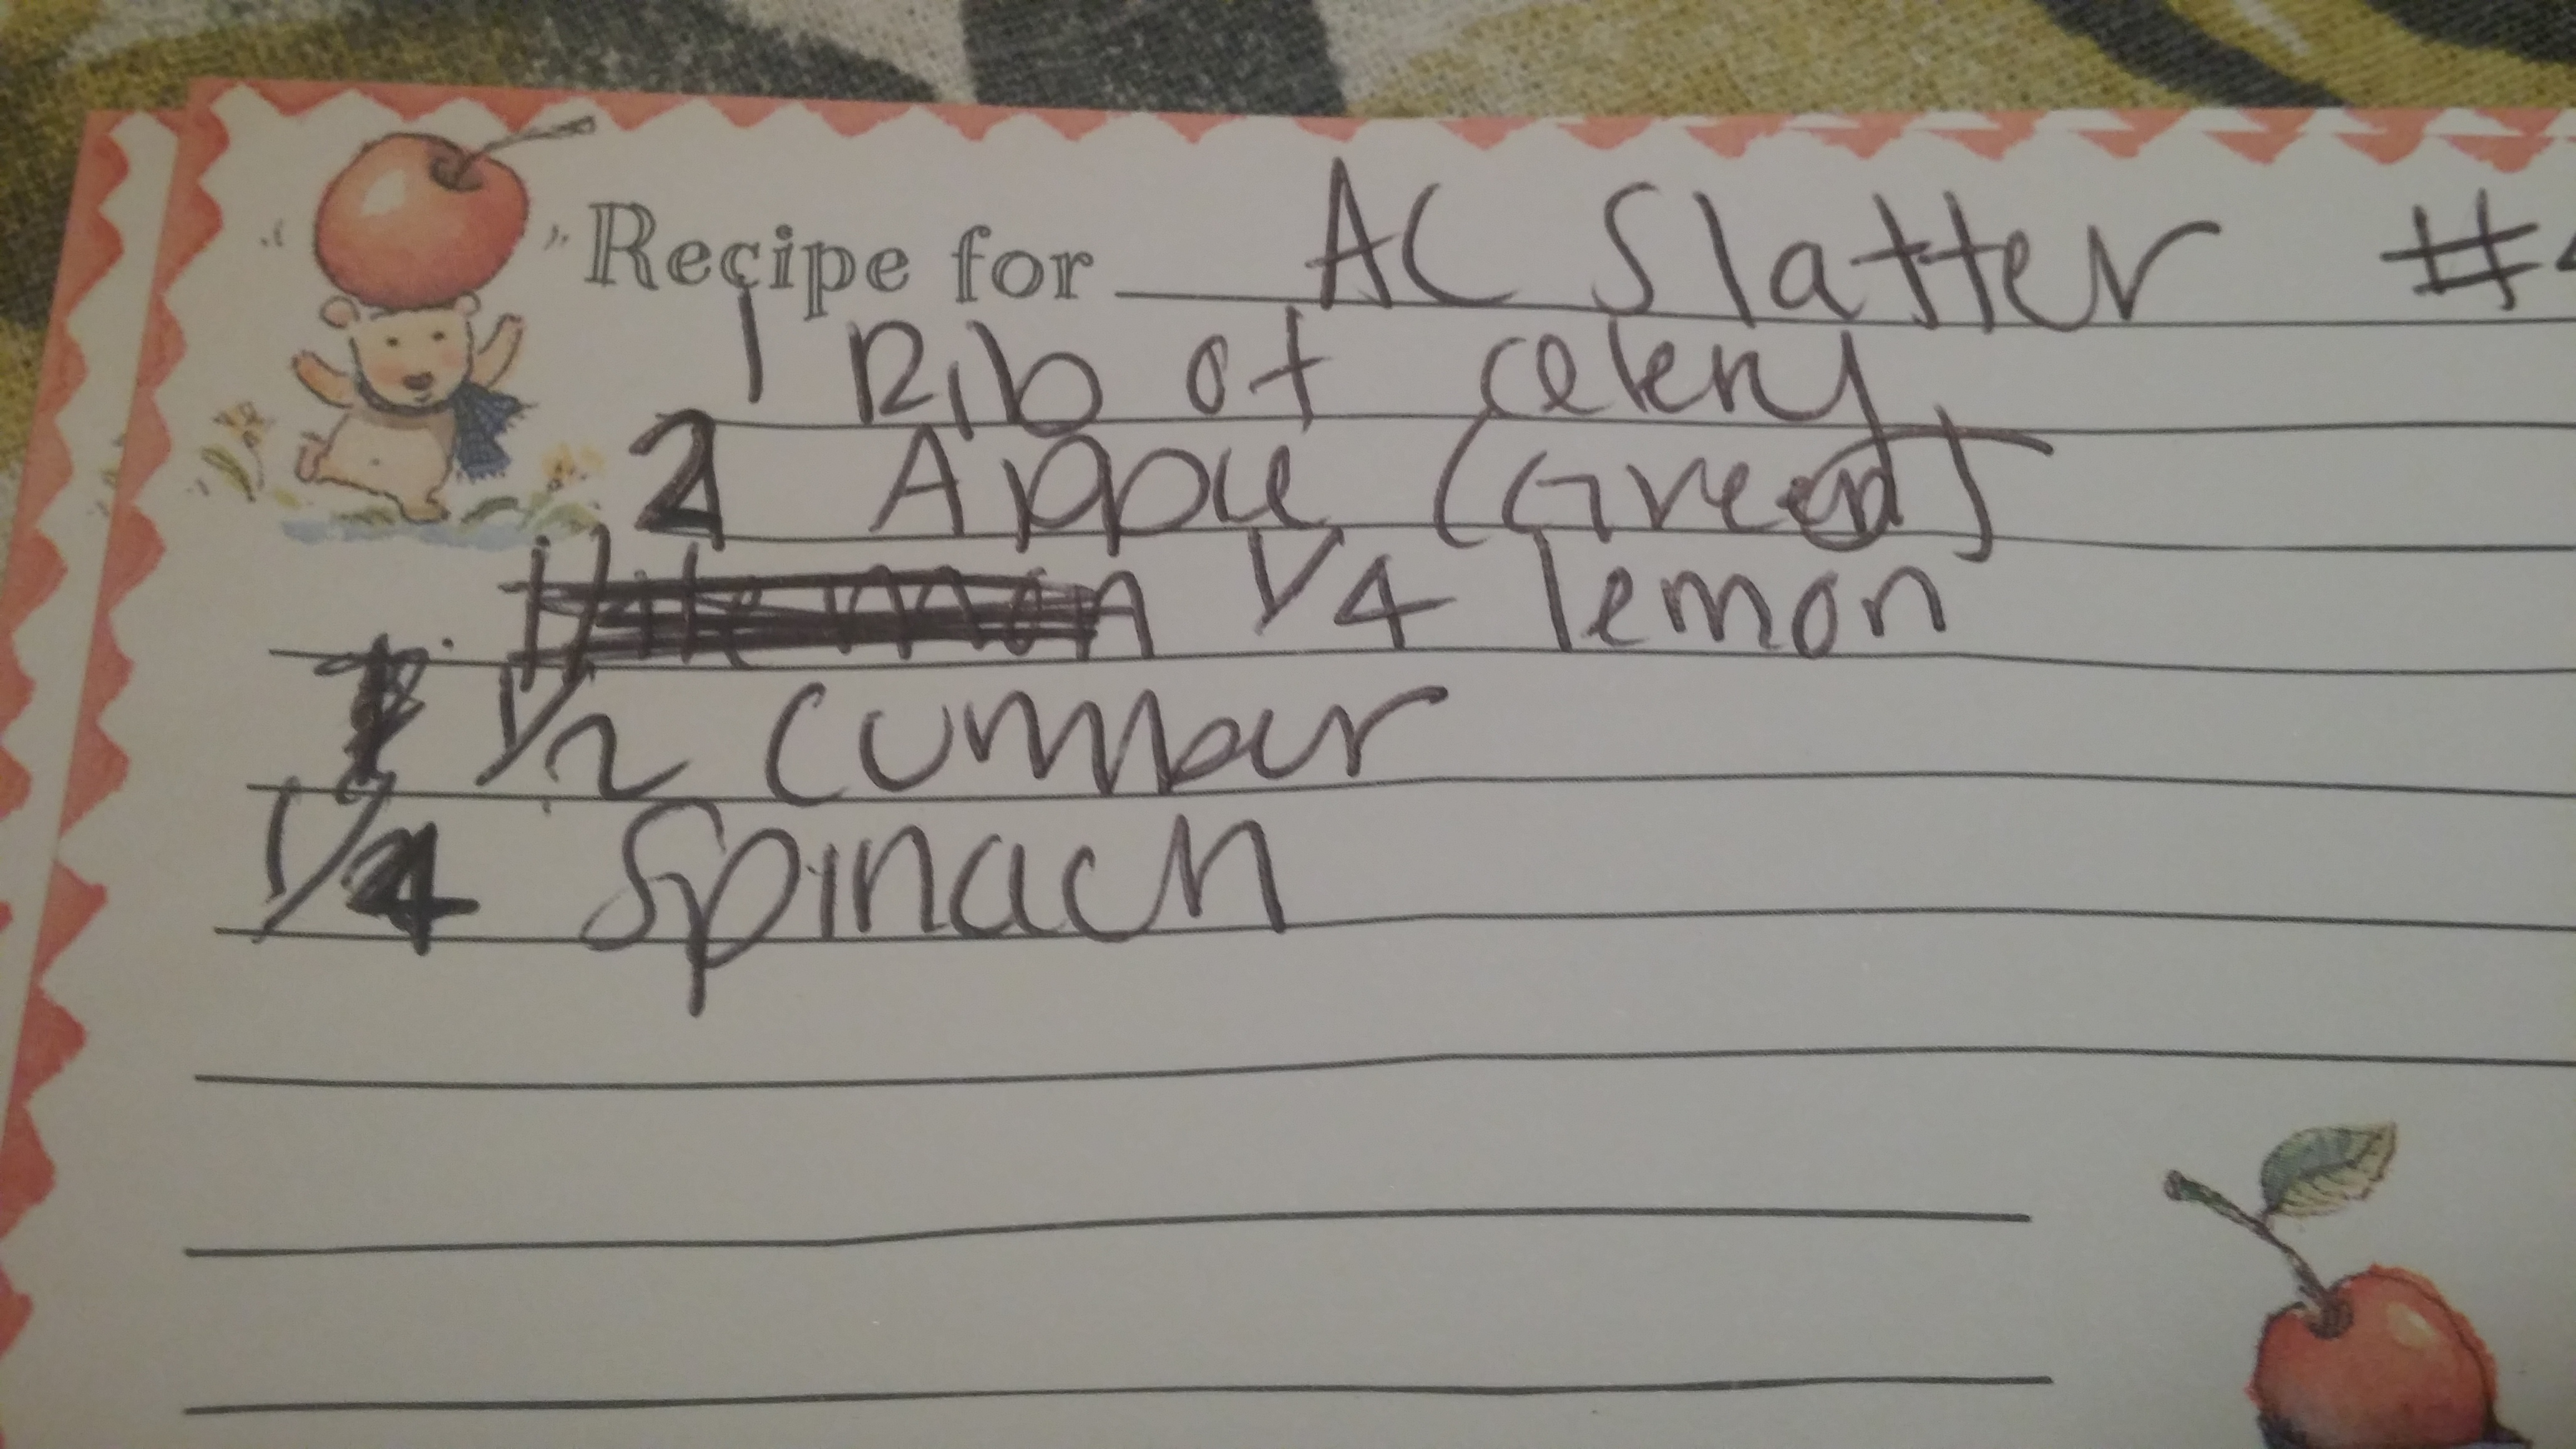 Recipe for AC Slatter #
1 Rib of celery
2 Apple (Green)
1/4 lemon
1/2 Cumber
1/4 Spinach